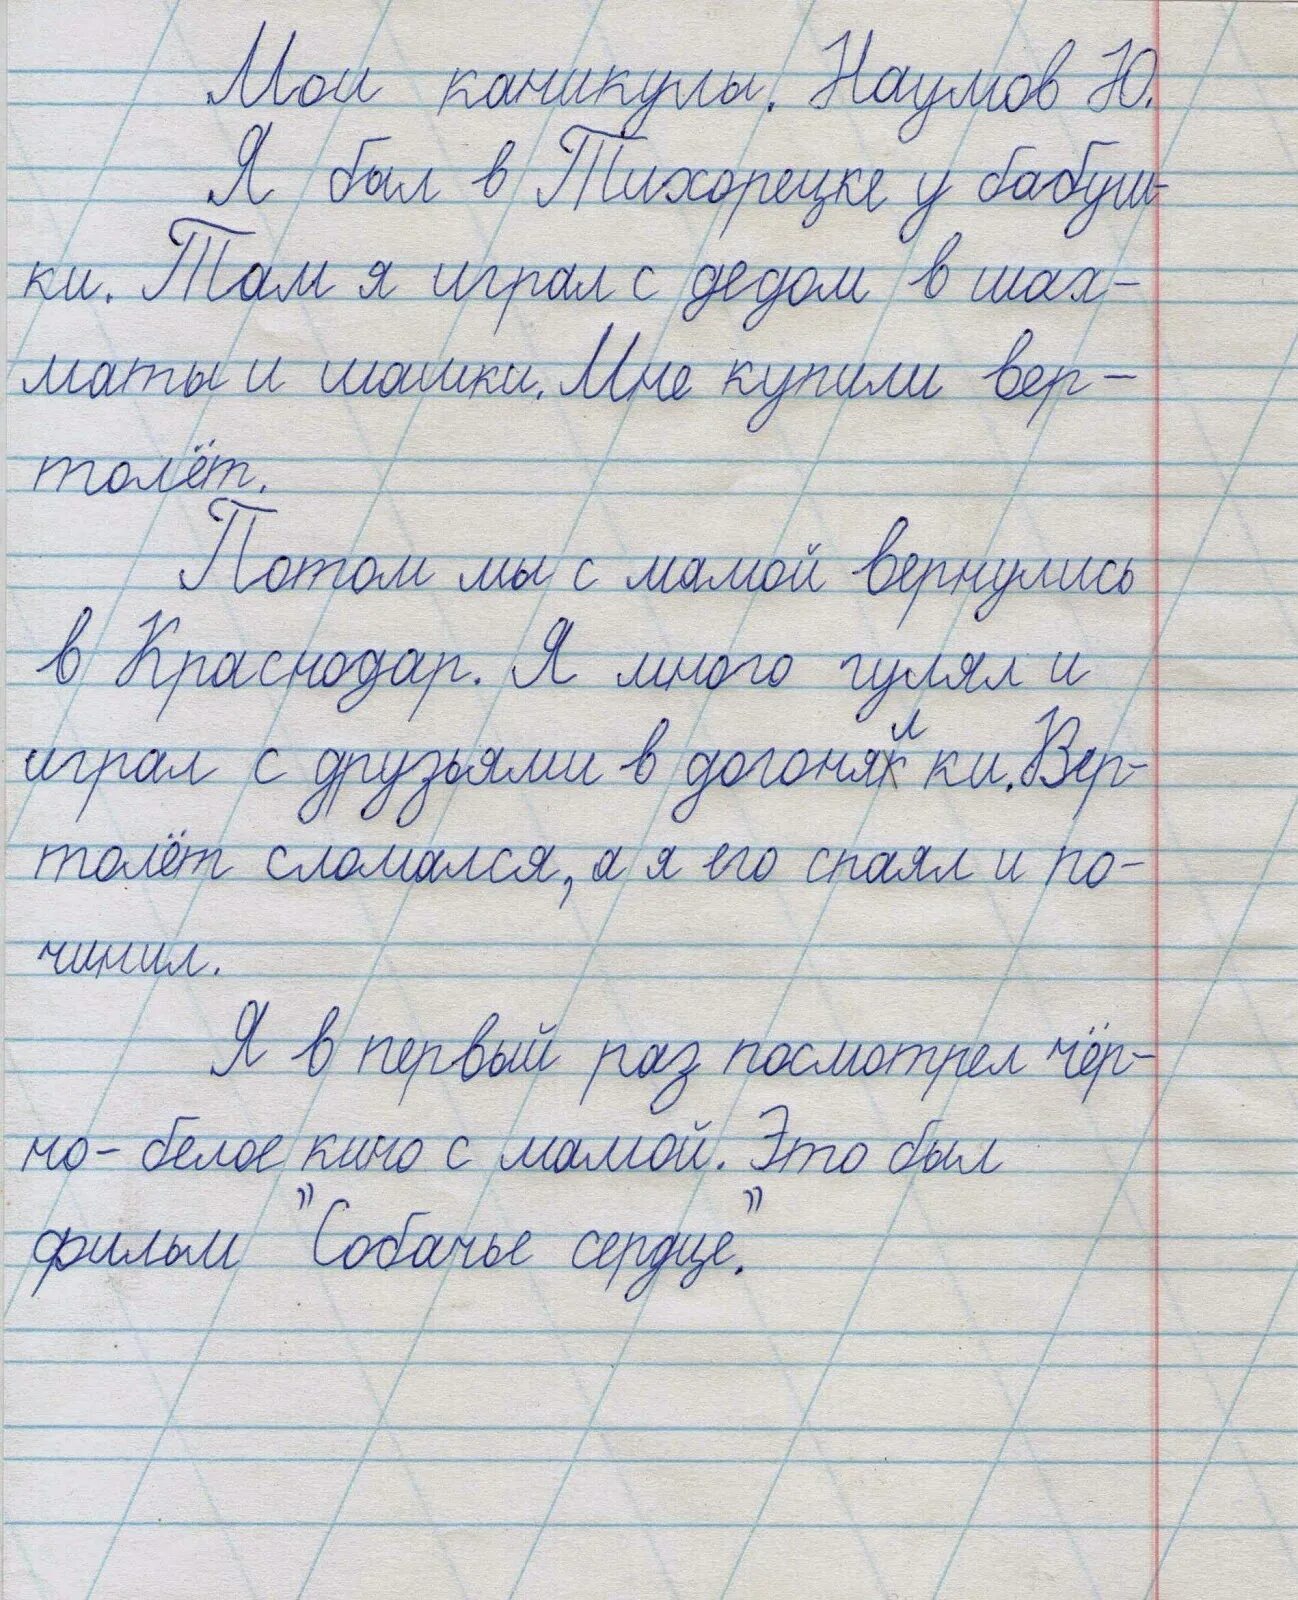 Мои каникулы. Наумов Ю.
Я был в Тихорецке у бабуш-
ки. Там я играл с дедом в шах-
маты и шашки. Мне купили вер-
толёт.
Потом мы с мамой вернулись
в Краснодар. Я много гулял и
играл с друзьями в догонялки. Вер-
толёт сломался, а я его спаял и по-
чинил.
Я в первый раз посмотрел чёр-
но-белое кино с мамой. Это был
фильм "Собачье сердце".